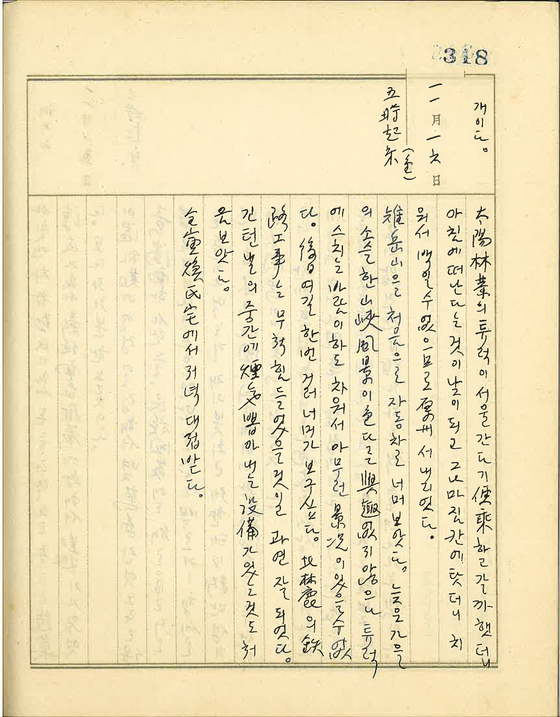 318
개이다。
一一月一六日
(金)
五時起床
太陽林業의튜럭이서울간다기便乘하고갈까했더니
아침에떠난다는것이낮이되고그나마짐칸에탓더니치
워서백일수없으므로原州서내리었다。
雉岳山을처음으로自动차로너머보았다。늦은가을
의소슬한山峽風景이色다른興趣없지않으나튜럭
에스치는바람이하도차워서아무런景况이있을수없
다。後日여길한번거러너머가보구싶다。北林庭의鉄
路工事는무척힘들었을것인과연잘되었다。
긴턴넬의중간에煙氣뽑아내는設備가있는것도처
음보았다。
金寅煥氏宅에서저녁대접받다。